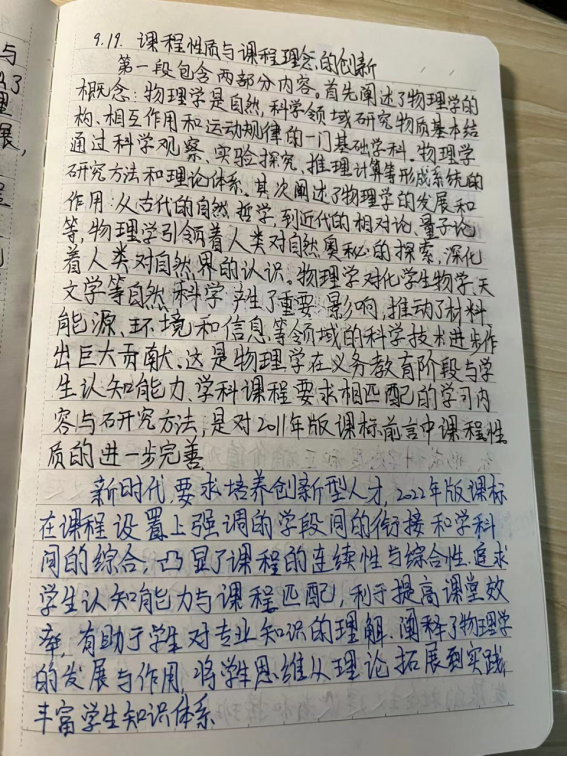 与
了
理
展,
9.19. 课程性质与课程理念的创新
第一段包含两部分内容。首先阐述了物理学的
概念:物理学是自然科学领域研究物质基本结
构、相互作用和运动规律的一门基础学科。物理学
通过科学观察、实验探究、推理计算等形成系统的
研究方法和理论体系。其次阐述了物理学的发展和
作用:从古代的自然哲学,到近代的相对论、量子论
等,物理学引领着人类对自然奥秘的探索,深化
着人类对自然界的认识。物理学对化学生物学、天
文学等自然科学产生了重要影响,推动了材料、
能源、环境和信息等领域的科学技术进步作
出巨大贡献。这是物理学在义务教育阶段与学
生认知能力、学科课程要求相匹配的学习内
容与研究方法,是对2011年版课标前言中课程性
质的进一步完善.
新时代,要求培养创新型人才,2022年版课标
在课程设置上强调的学段间的衔接和学科
间的综合,凸显了课程的连续性与综合性.追求
学生认知能力与课程匹配,利于提高课堂效
率,有助于学生对专业知识的理解.阐释了物理学
的发展与作用,将学生思维从理论拓展到实践,
丰富学生知识体系.